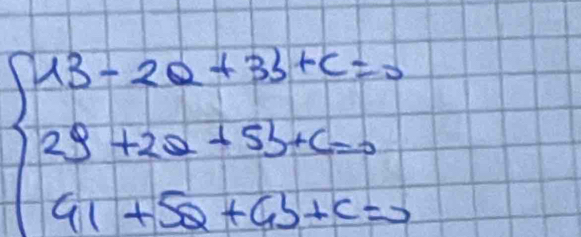 13 - 2a + 3b + c = 0
29 + 2a + 5b + c = 0
41 + 5a + 4b + c = 0